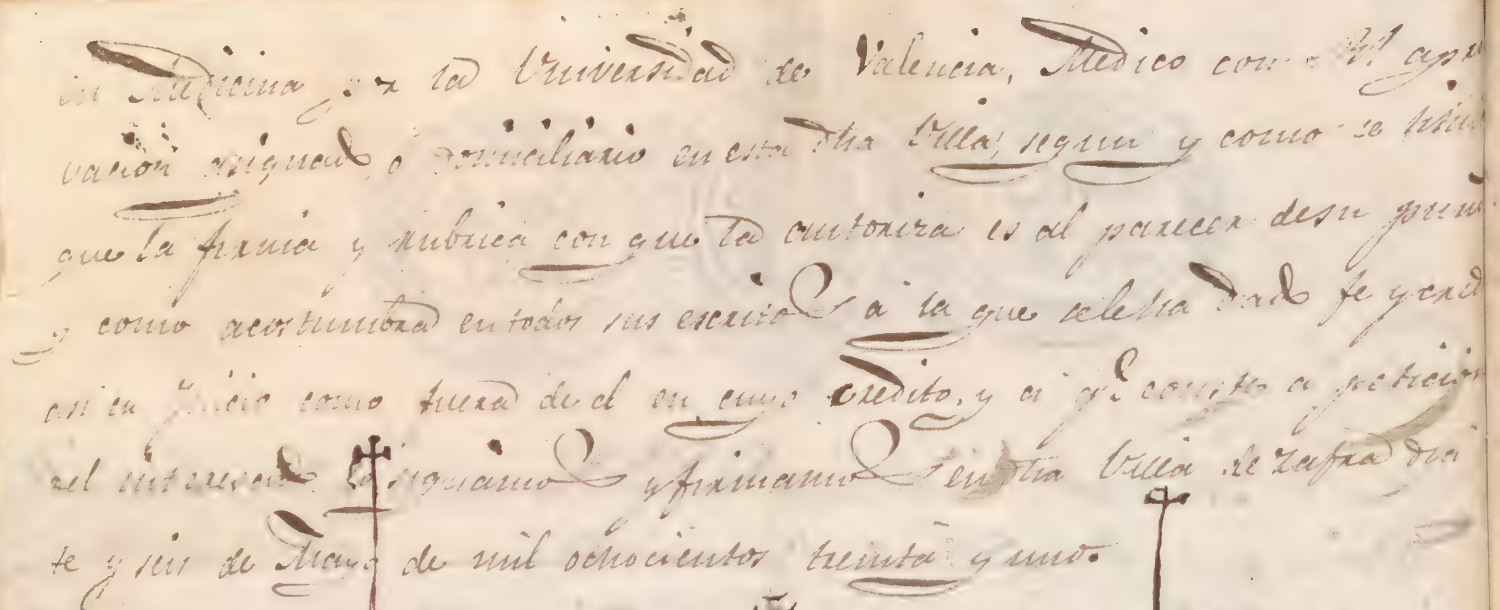 en Medicina por la Universidad de Valencia, Medico con Rl apro
vacion asignado, o domiciliario en esta dha Villa, segun y como se titula
que la firma y rubrica con que la autoriza es al parecer de su puño
y como acostumbra en todos sus escritos à la que se le ha dado fe y cred
asi en juicio como fuera de el en cuyo credito, y à qe conste a peticion
del interesado signamos y firmamos en dha Villa de Zafra dia
te y seis de Mayo de mil ochocientos treinta y uno.